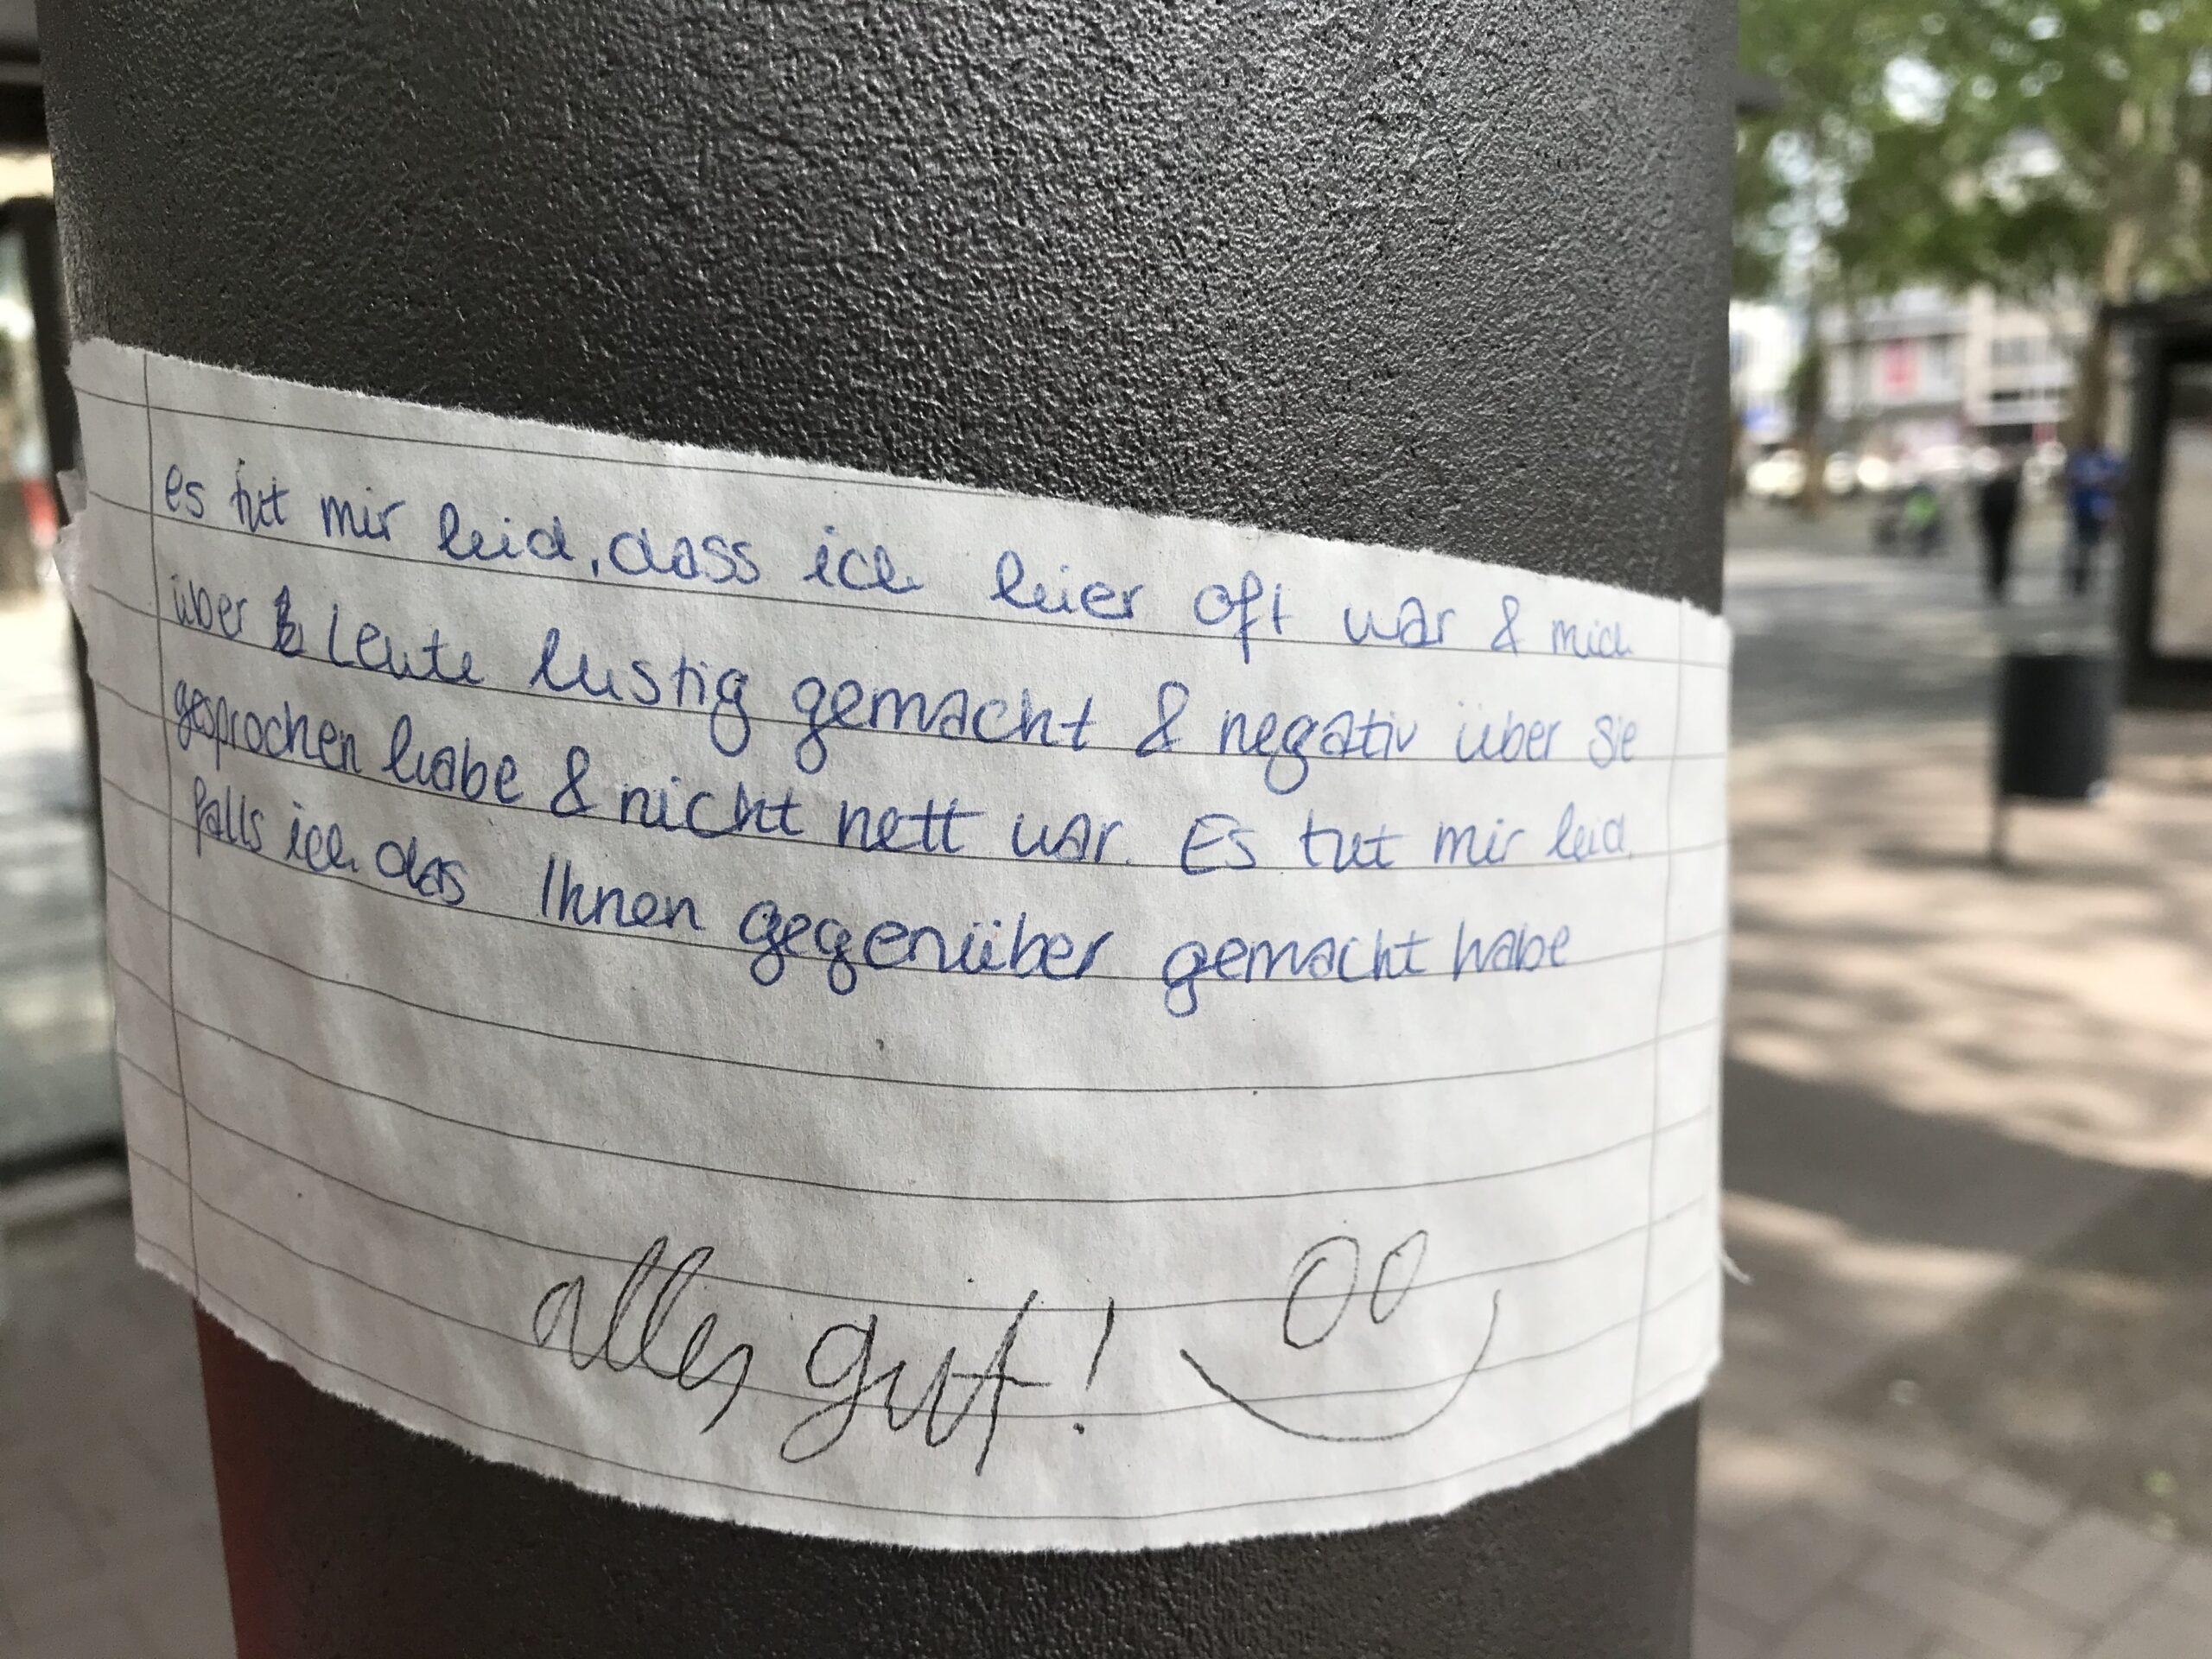 es tut mir leid, dass ich hier oft war & mich
über Leute lustig gemacht & negativ über sie
gesprochen habe & nicht nett war. Es tut mir leid,
falls ich das Ihnen gegenüber gemacht habe
alles gut!